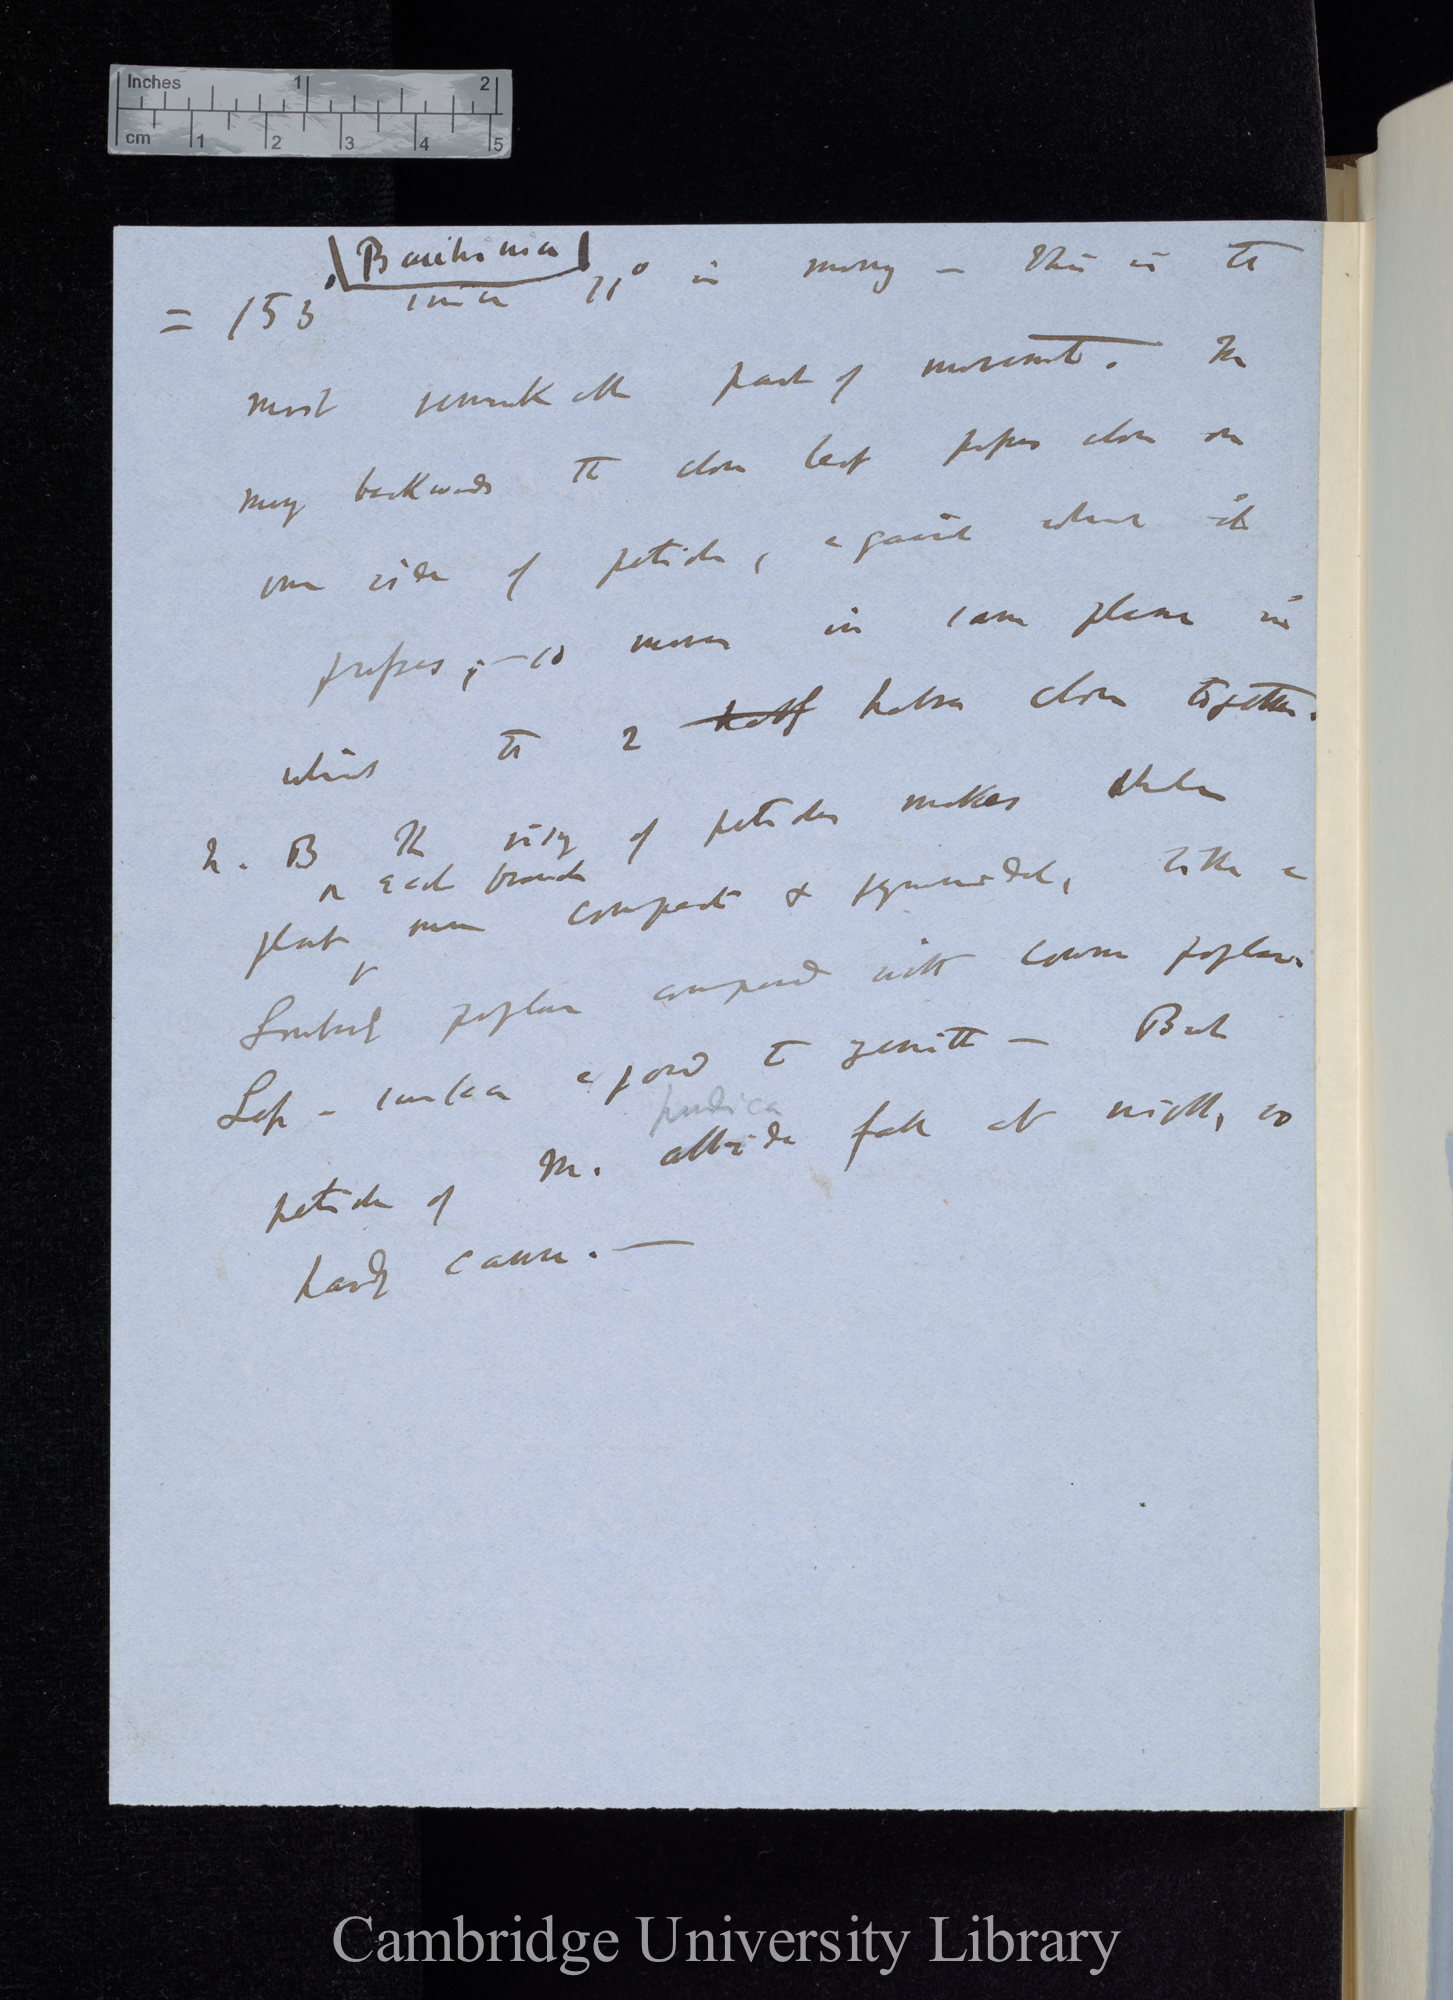 Inches 1 2
cm 1 2 3 4 5
Bauhinia
= 153 since 71° in morng — This is the
most remarkable part of movement. The
may backwards the close leaf passes close on
one side of petiole, against which it
presses; — so moves in same plane in
which the 2 half halves close together.
N. B The rising of petioles makes whole
or each branch
plant more compact & symmetrical, like a
Lombardy poplar compared with common poplar.
Leps — surface exposed to zenith — But
pudica
petiole of M. albida fall at night, so
hardly cause. —
Cambridge University Library